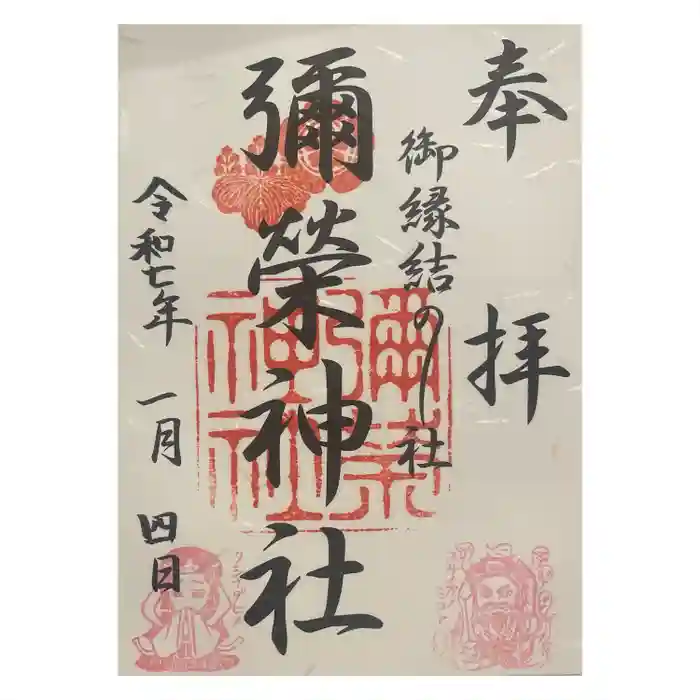 奉拝
御縁結の社
彌榮神社
令和七年一月四日
彌榮
神社